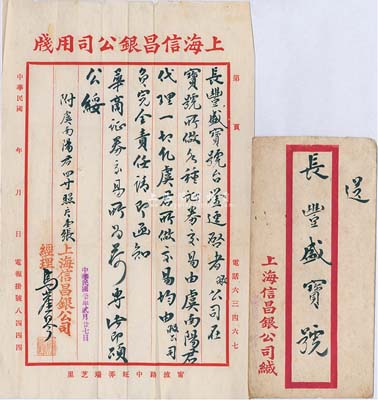 上海信昌銀公司用牋
第 頁
電話六三四六七
長豐盛寶號台鑒逕啓者敝公司在
寶號所做各種証券交易由虞南陽君
代理一切凡虞君所做交易均由敝公司
負完全責任請即通知
華商証券交易所為荷專此即頌
公綏
附虞南陽君四寸照片壹張
中華民國 年弍月廿七日
上海信昌銀公司
經理
中華民國 年 月 日
電報掛號八四四四
甯波路中旺弄瑞芝里
送
長豐盛寶號
上海信昌銀公司緘